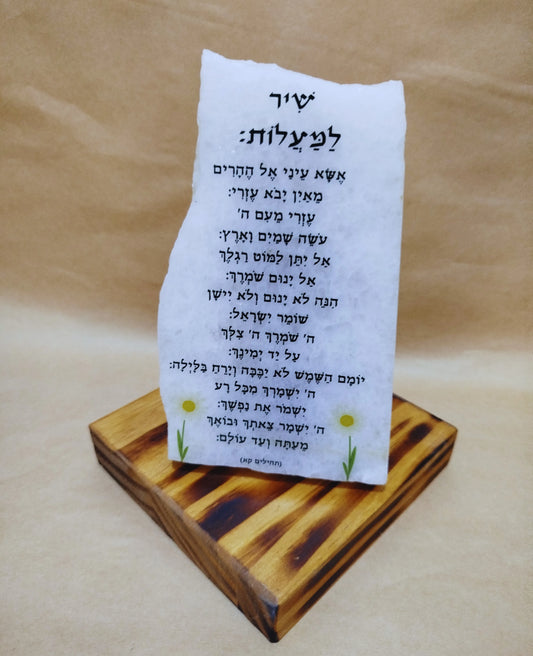 שִׁיר
לַמַּעֲלוֹת:
אֶשָּׂא עֵינַי אֶל הֶהָרִים
מֵאַיִן יָבֹא עֶזְרִי:
עֶזְרִי מֵעִם ה'
עֹשֵׂה שָׁמַיִם וָאָרֶץ:
אַל יִתֵּן לַמּוֹט רַגְלֶךָ
אַל יָנוּם שֹׁמְרֶךָ:
הִנֵּה לֹא יָנוּם וְלֹא יִישָׁן
שׁוֹמֵר יִשְׂרָאֵל:
ה' שֹׁמְרֶךָ ה' צִלְּךָ
עַל יַד יְמִינֶךָ:
יוֹמָם הַשֶּׁמֶשׁ לֹא יַכֶּכָּה וְיָרֵחַ בַּלָּיְלָה:
ה' יִשְׁמָרְךָ מִכָּל רָע
יִשְׁמֹר אֶת נַפְשֶׁךָ:
ה' יִשְׁמָר צֵאתְךָ וּבוֹאֶךָ
מֵעַתָּה וְעַד עוֹלָם:
(תהילים קא)